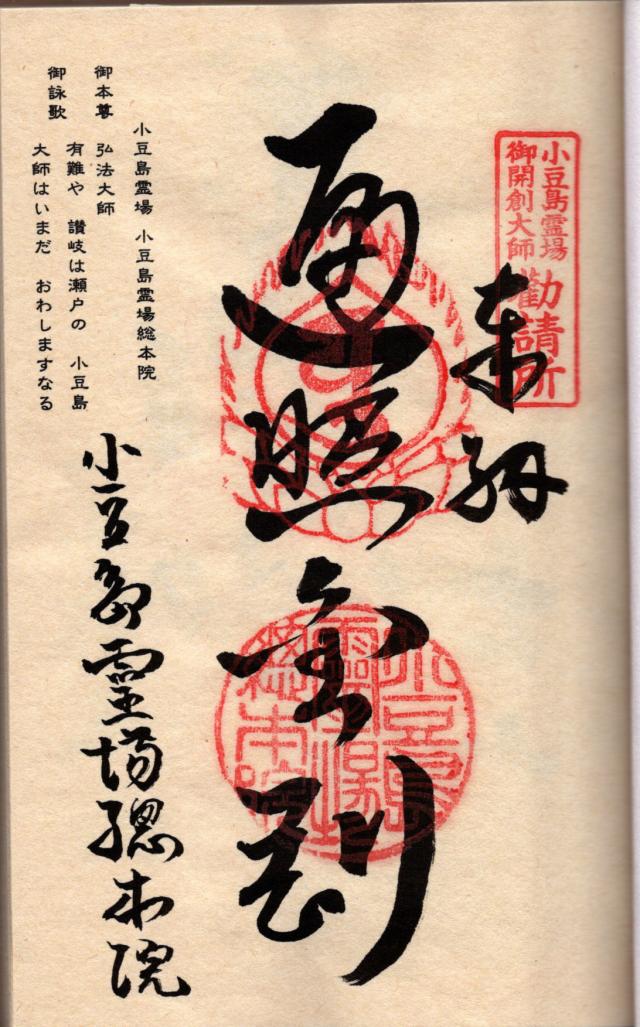 小豆島霊場
御開創大師
勧請所
奉納
遍照金剛
小豆島霊場総本院
小豆島霊場 小豆島霊場総本院
御本尊 弘法大師
有難や 讃岐は瀬戸の 小豆島
御詠歌
大師はいまだ おわしますなる
小豆島霊場総本院